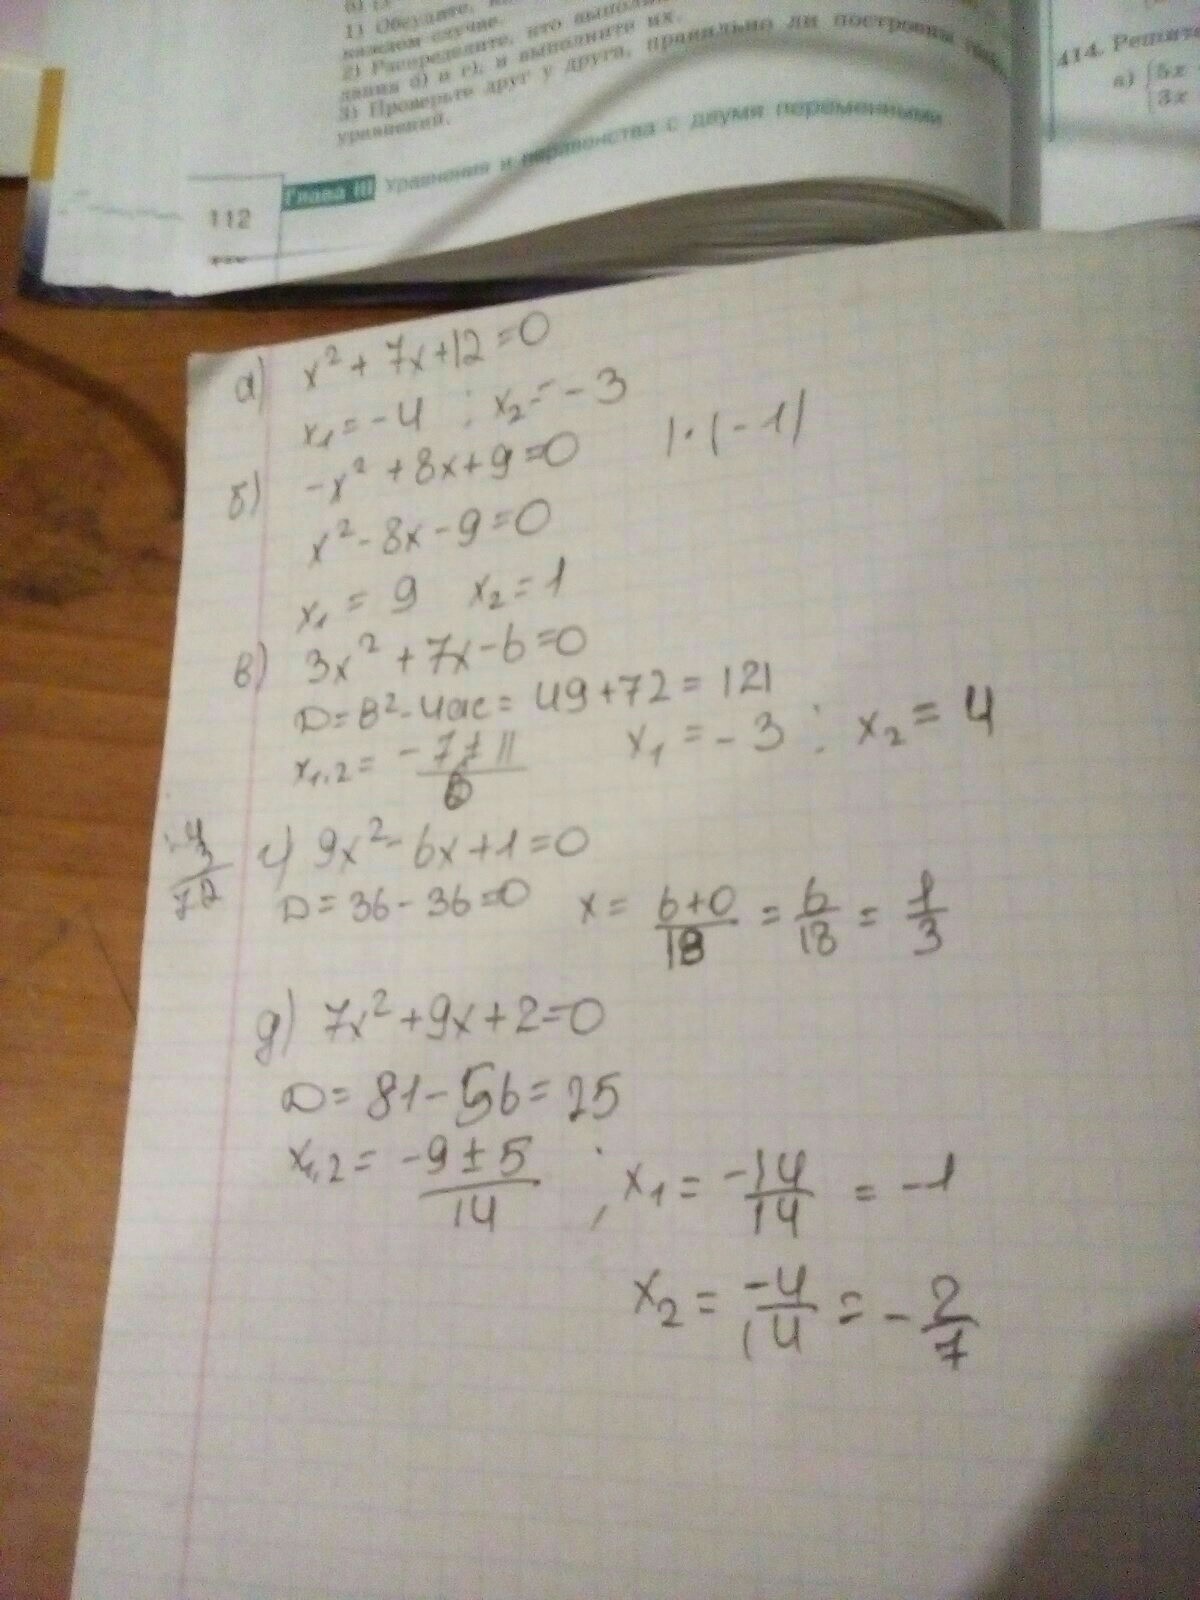 1) Обсудите,
каждом случае.
2) Распределите, кто выполняет
дания б) и г), и выполните их.
3) Проверьте друг у друга, правильно ли построены
уравнений.
112
Глава III Уравнения и неравенства с двумя переменными
414. Решите
а) {5x
{3x
а) x² + 7x + 12 = 0
x₁ = -4 ; x₂ = -3
б) -x² + 8x + 9 = 0 |·(-1)
x² - 8x - 9 = 0
x₁ = 9 x₂ = 1
в) 3x² + 7x - 6 = 0
D = в² - 4ac = 49 + 72 = 121
x₁,₂ = (-7 ± 11)/6 x₁ = -3 ; x₂ = 4
г) 9x² - 6x + 1 = 0
D = 36 - 36 = 0 x = (6+0)/18 = 6/18 = 1/3
д) 7x² + 9x + 2 = 0
D = 81 - 56 = 25
x₁,₂ = (-9 ± 5)/14 ; x₁ = -14/14 = -1
x₂ = -4/14 = -2/7